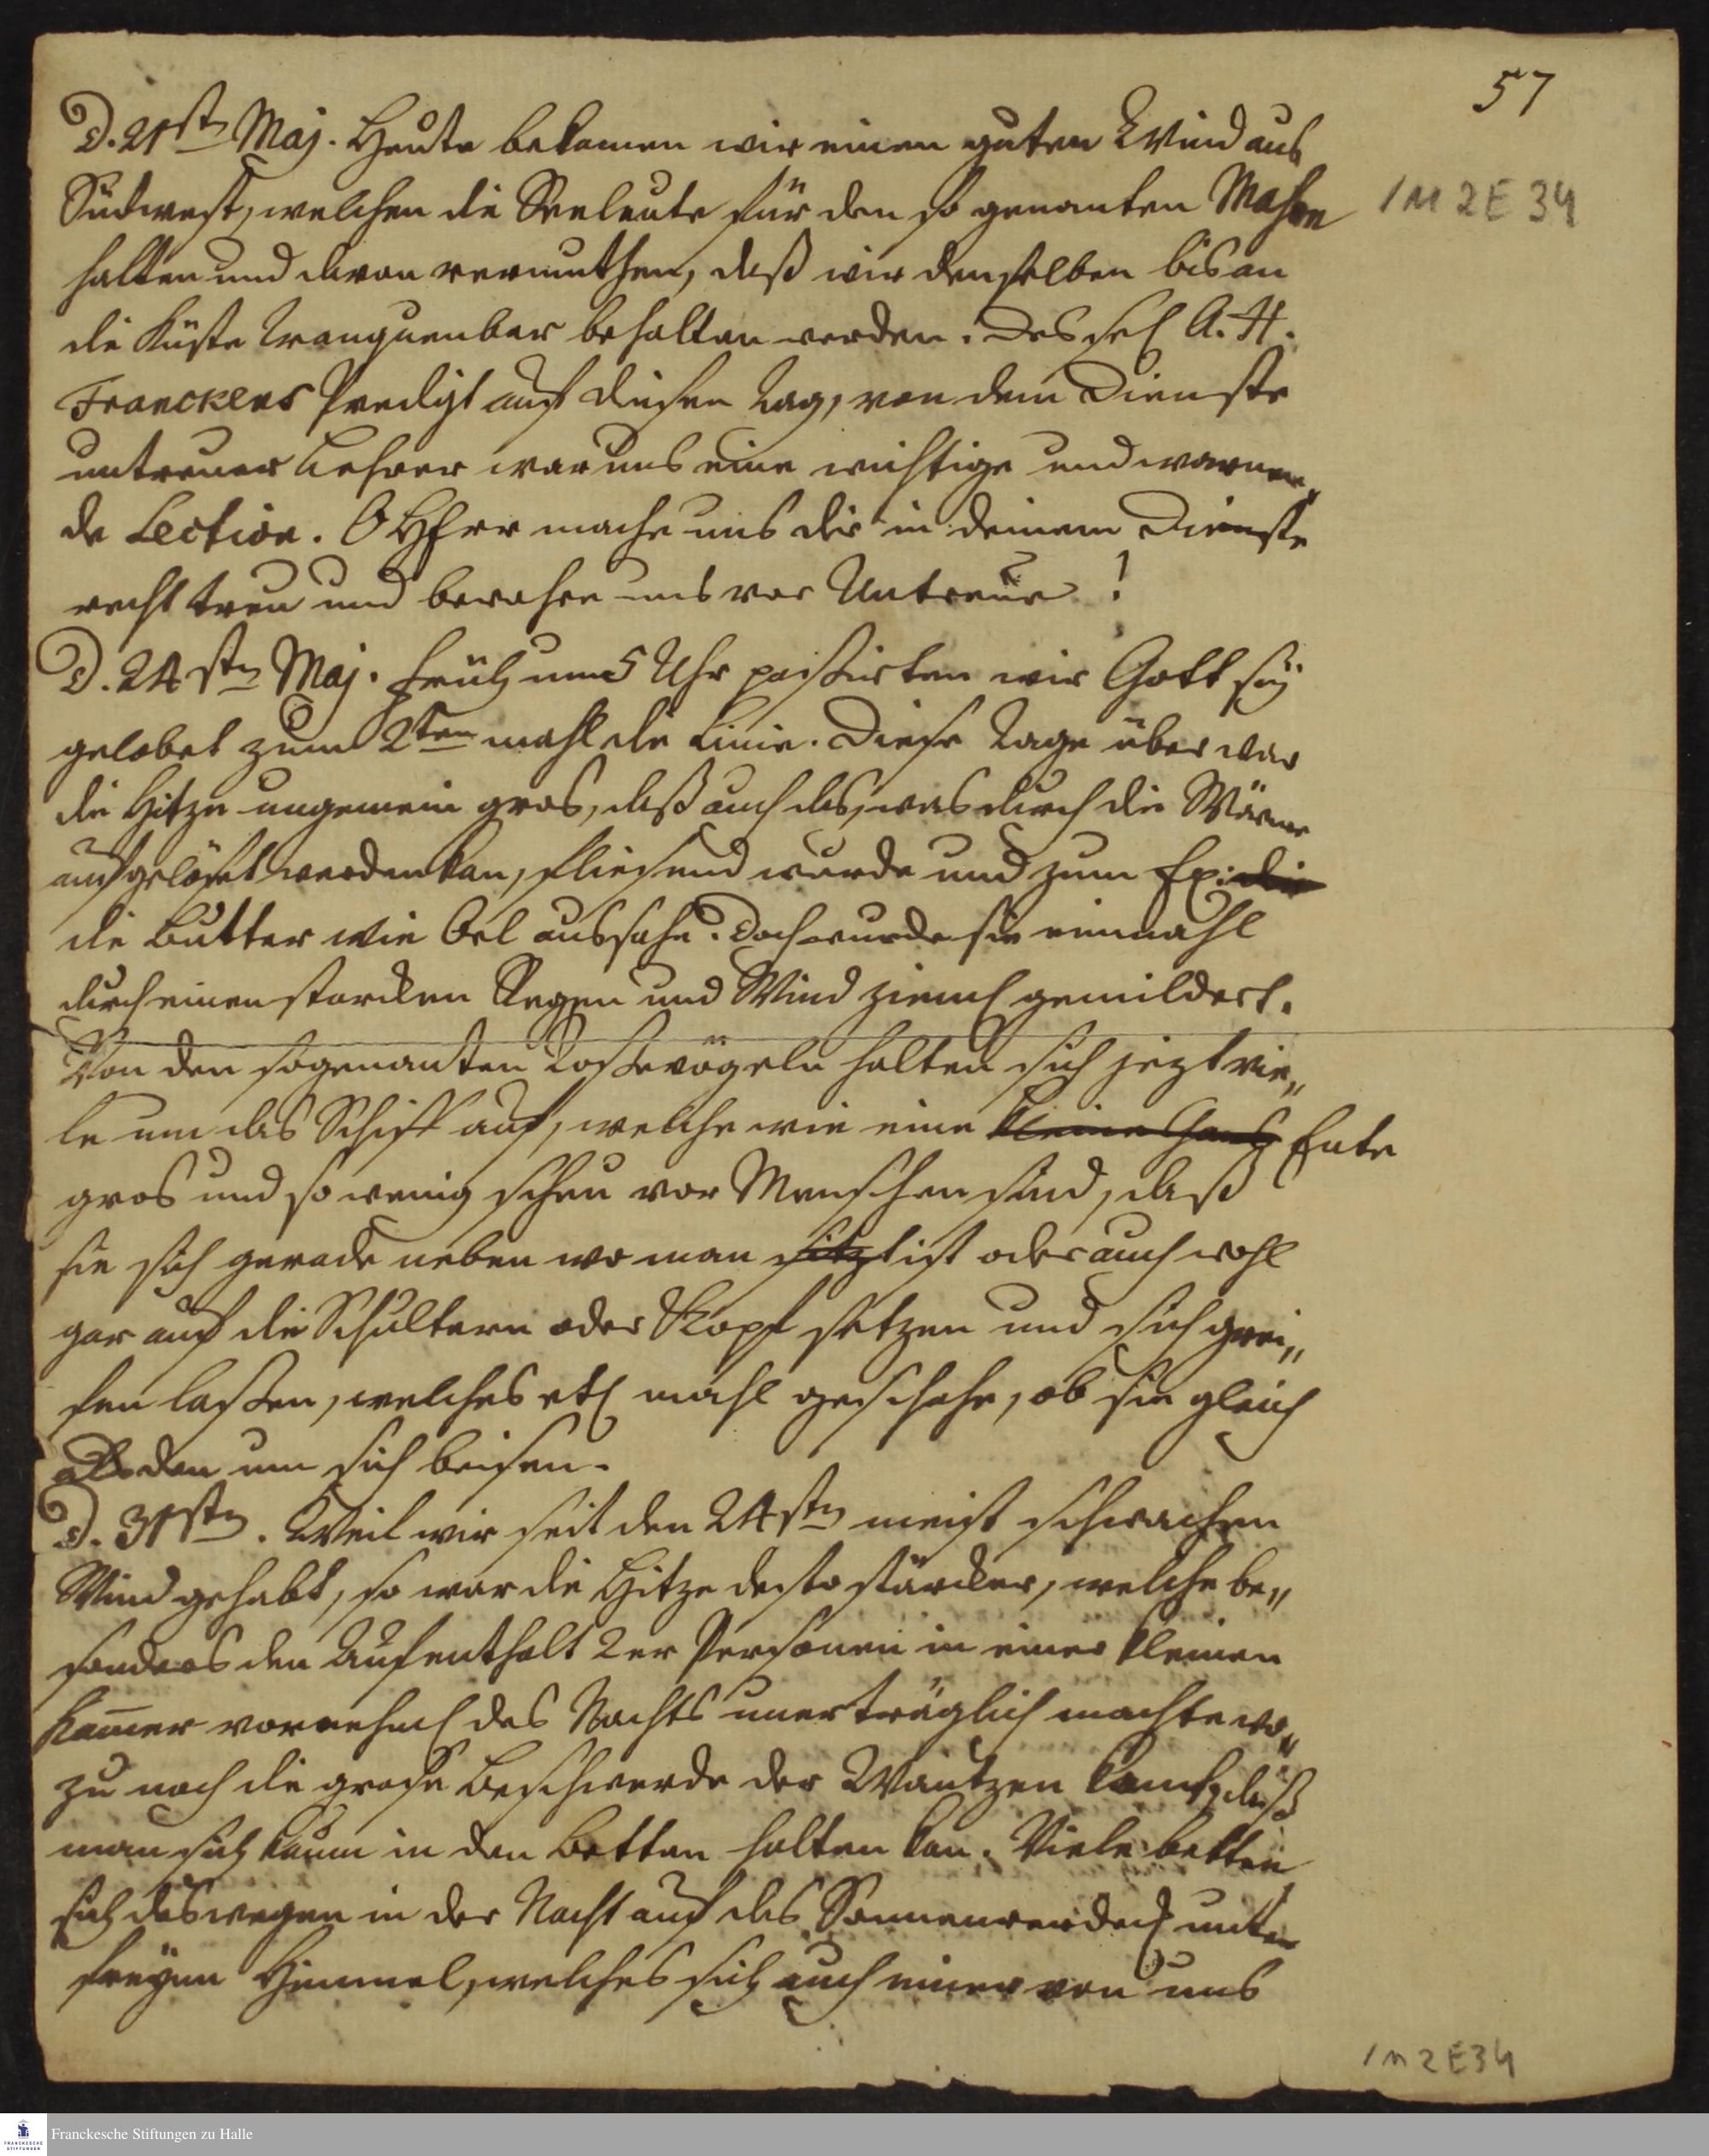 57
D. 21stn Maj. Heute bekamen wir einen guten Wind aus
Südwest, welchen die Seeleute für den so genanten Mason
1M 2E 34
halten und davon vermuthen, daß wir denselben bis an
die Küste Tranquenbar behalten werden. Des sel A. H.
Franckens Predigt auf diesen Tag, von dem Dienste
untreuer Lehrer war uns eine wichtige und warnen„
de Lection. O HErr mache uns dir in deinem Dienste
recht treu und bewahre uns vor Untreue!
D. 24stn Maj. Früh um 5 Uhr passirten wir Gott sey
gelobet zum 2ten mahl die Linie. Diese Tage über war
die Hitze ungemein gros, daß auch das, was durch die Wärme
aufgelöset werden kan, fliesend wurde und zum Ex: die
die Butter wie Oel aussahe. Doch wurde sie einmahl
durch einen starcken Regen und Wind zieml gemildert.
Von den sogenanten Tossevögeln halten sich jezt vie„
le um das Schiff auf, welche wie eine kleine Gans Ente
gros und so wenig scheu vor Menschen sind, daß
sie sich gerade neben wo man sitzt ist oder auch wohl
gar auf die Schultern oder Kopf setzen und sich grei„
fen lassen, welches etl mahl geschahe, ob sie gleich
alsden um sich beisen.
D. 31stn. Weil wir seit den 24stn meist schwachen
Wind gehabt, so war die Hitze desto stärcker, welche be„
sonders den Aufenthalt 2er Personen in einer kleinen
Kam̅er vornehml des Nachts unerträglich machte wo„
zu noch die grose Beschwerde der Wantzen komt, daß
man sich kaum in den Betten halten kan. Viele betten
sich deswegen in der Nacht auf das Sonnenverdeck unter
freyen Himmel, welches sich auch einer von uns
1M 2E34
Franckesche Stiftungen zu Halle
FRANCKESCHE
STIFTUNGEN